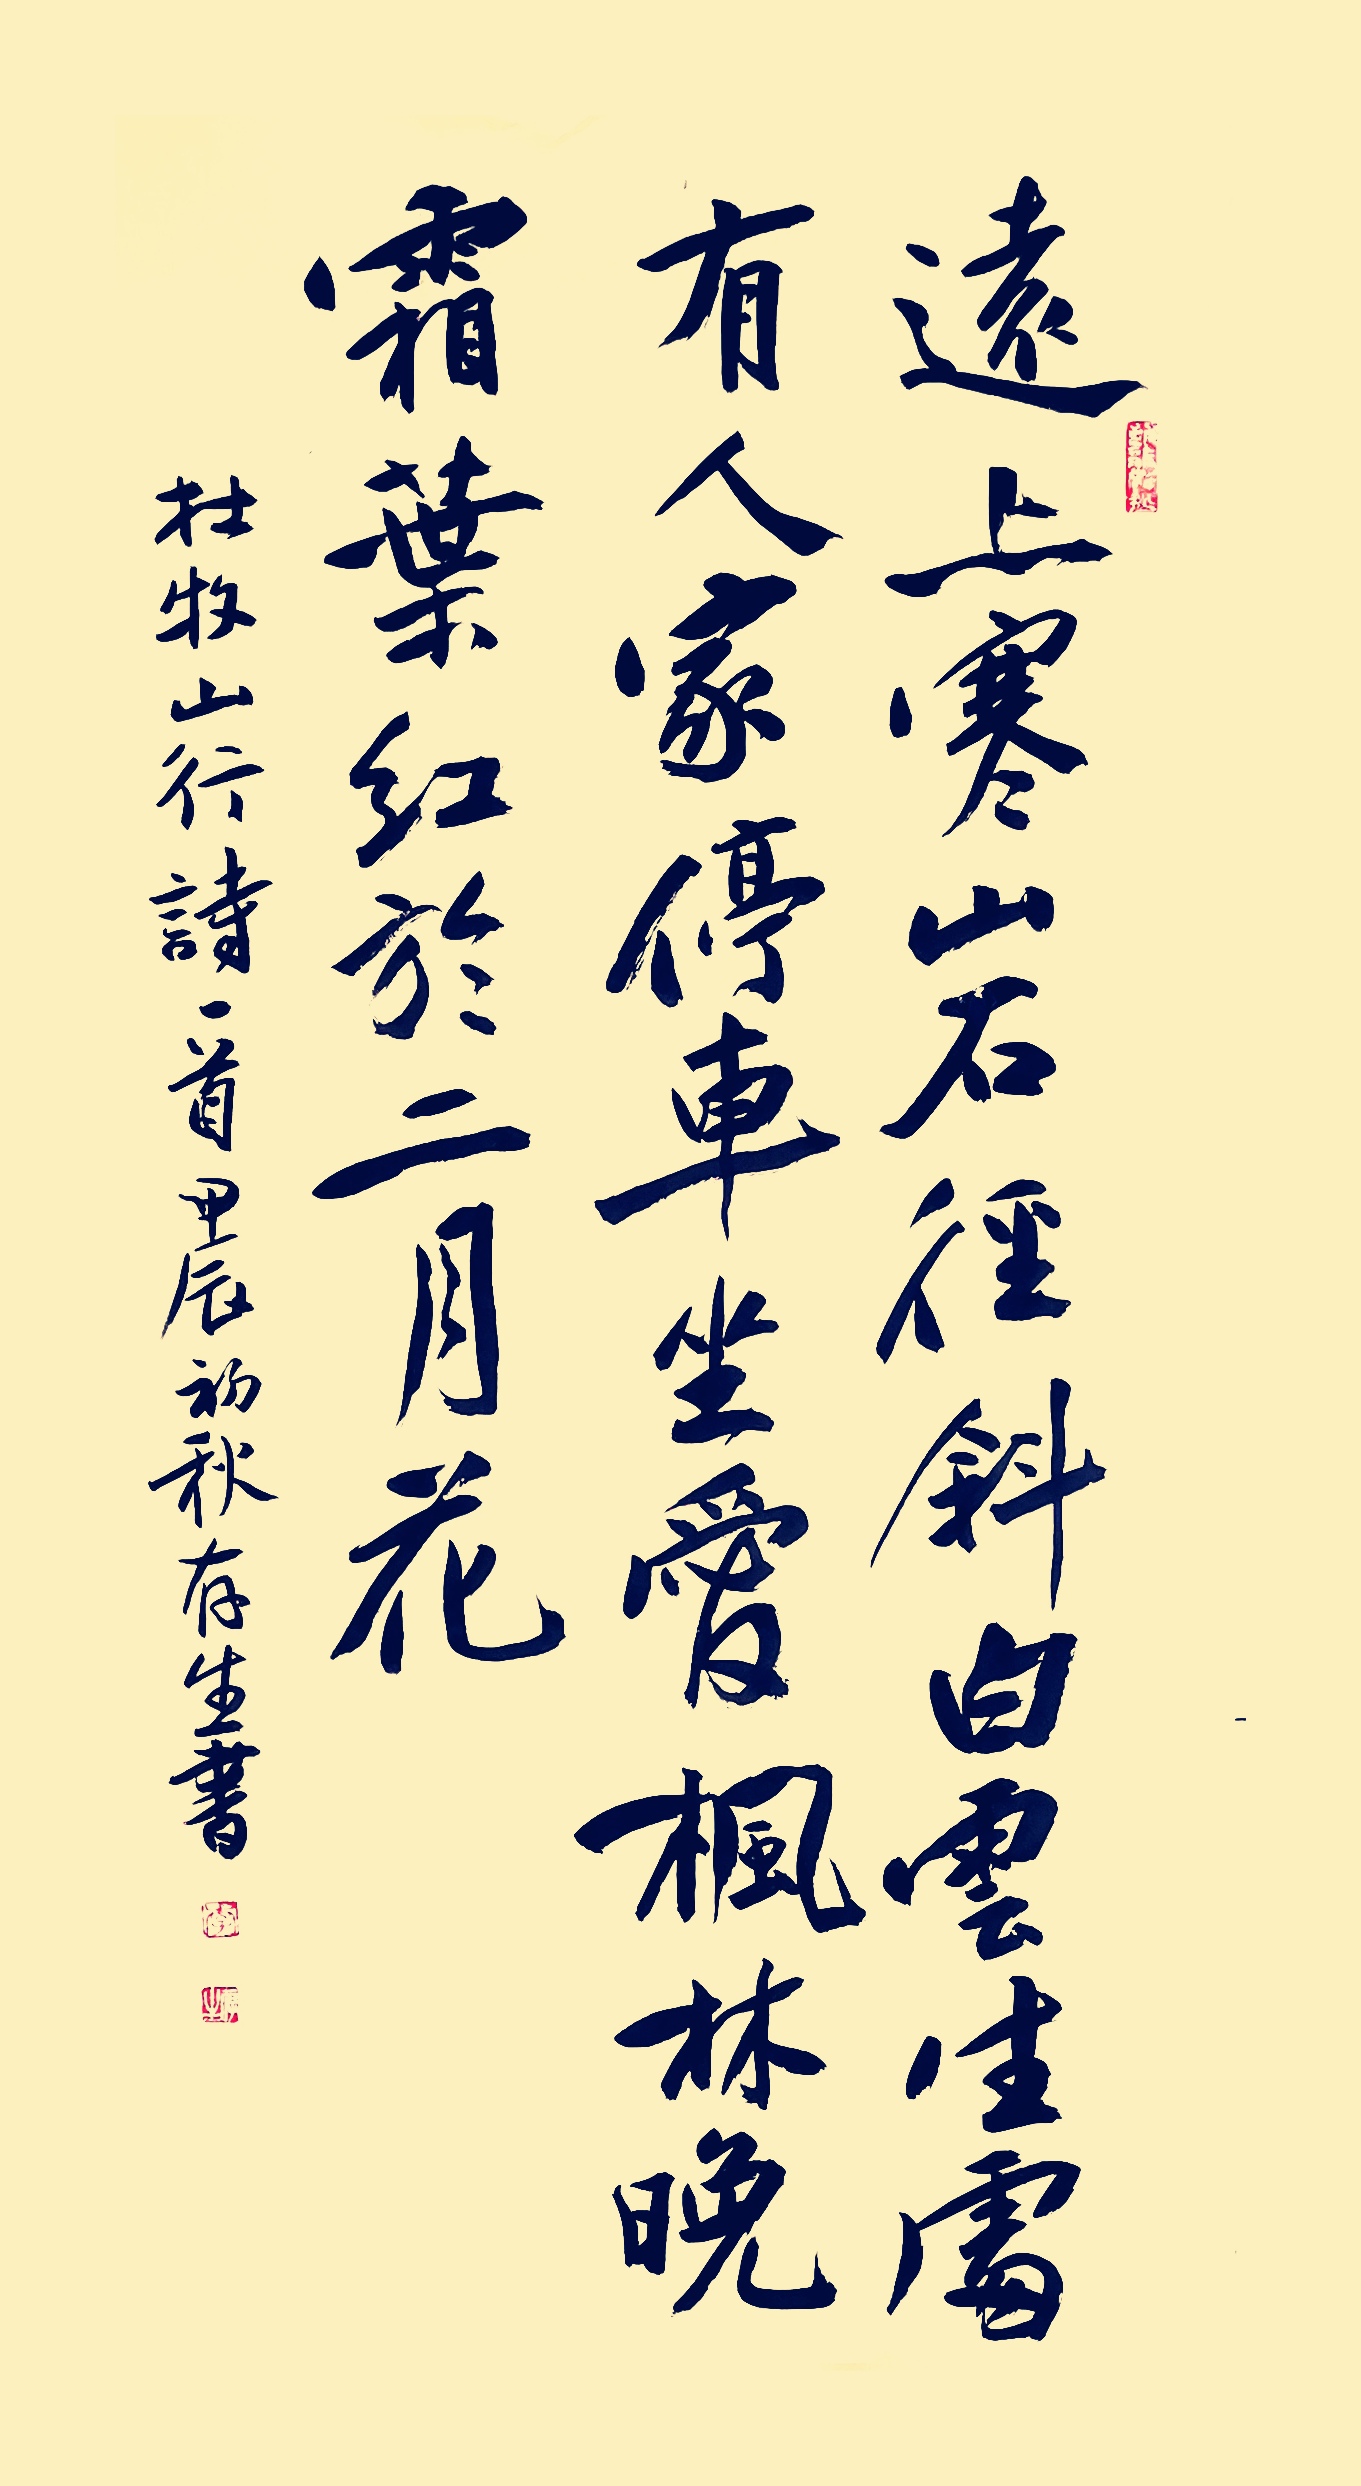 遠上寒山石徑斜白雲生處
有人家停車坐愛楓林晚
霜葉紅於二月花
杜牧山行詩一首甲辰初秋存生書